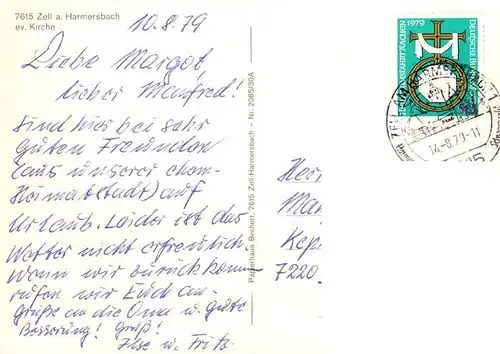 7615 Zell a. Harmersbach
ev. Kirche
10.8.79
Liebe Margot,
lieber Manfred!
Sind hier bei sehr
guten Freunden
(aus unserer ehem.
Heimatstadt) auf
Urlaub. Leider ist das
Wetter nicht erfreulich.
Wenn wir zurück kommen
rufen wir Euch an.
Grüße an die Oma u. gute
Besserung! Gruß!
Ilse u. Fritz.
Papierhaus Bechert, 7615 Zell-Harmersbach - Nr. 2085/30A
1979
DEUTSCHE BUNDESPOST
HEILIGTUMSFAHRT AACHEN
ZELL AM HARMERSBACH
14.-8.79-11
Herr
Ma
Kep
7220